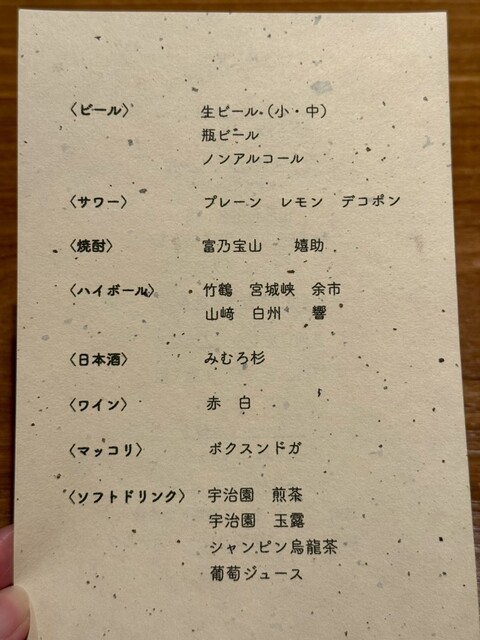 〈ビール〉 生ビール（小・中）
瓶ビール
ノンアルコール
〈サワー〉 プレーン レモン デコポン
〈焼酎〉 富乃宝山 嬉助
〈ハイボール〉 竹鶴 宮城峡 余市
山﨑 白州 響
〈日本酒〉 みむろ杉
〈ワイン〉 赤 白
〈マッコリ〉 ボクスンドガ
〈ソフトドリンク〉 宇治園 煎茶
宇治園 玉露
シャンピン烏龍茶
葡萄ジュース